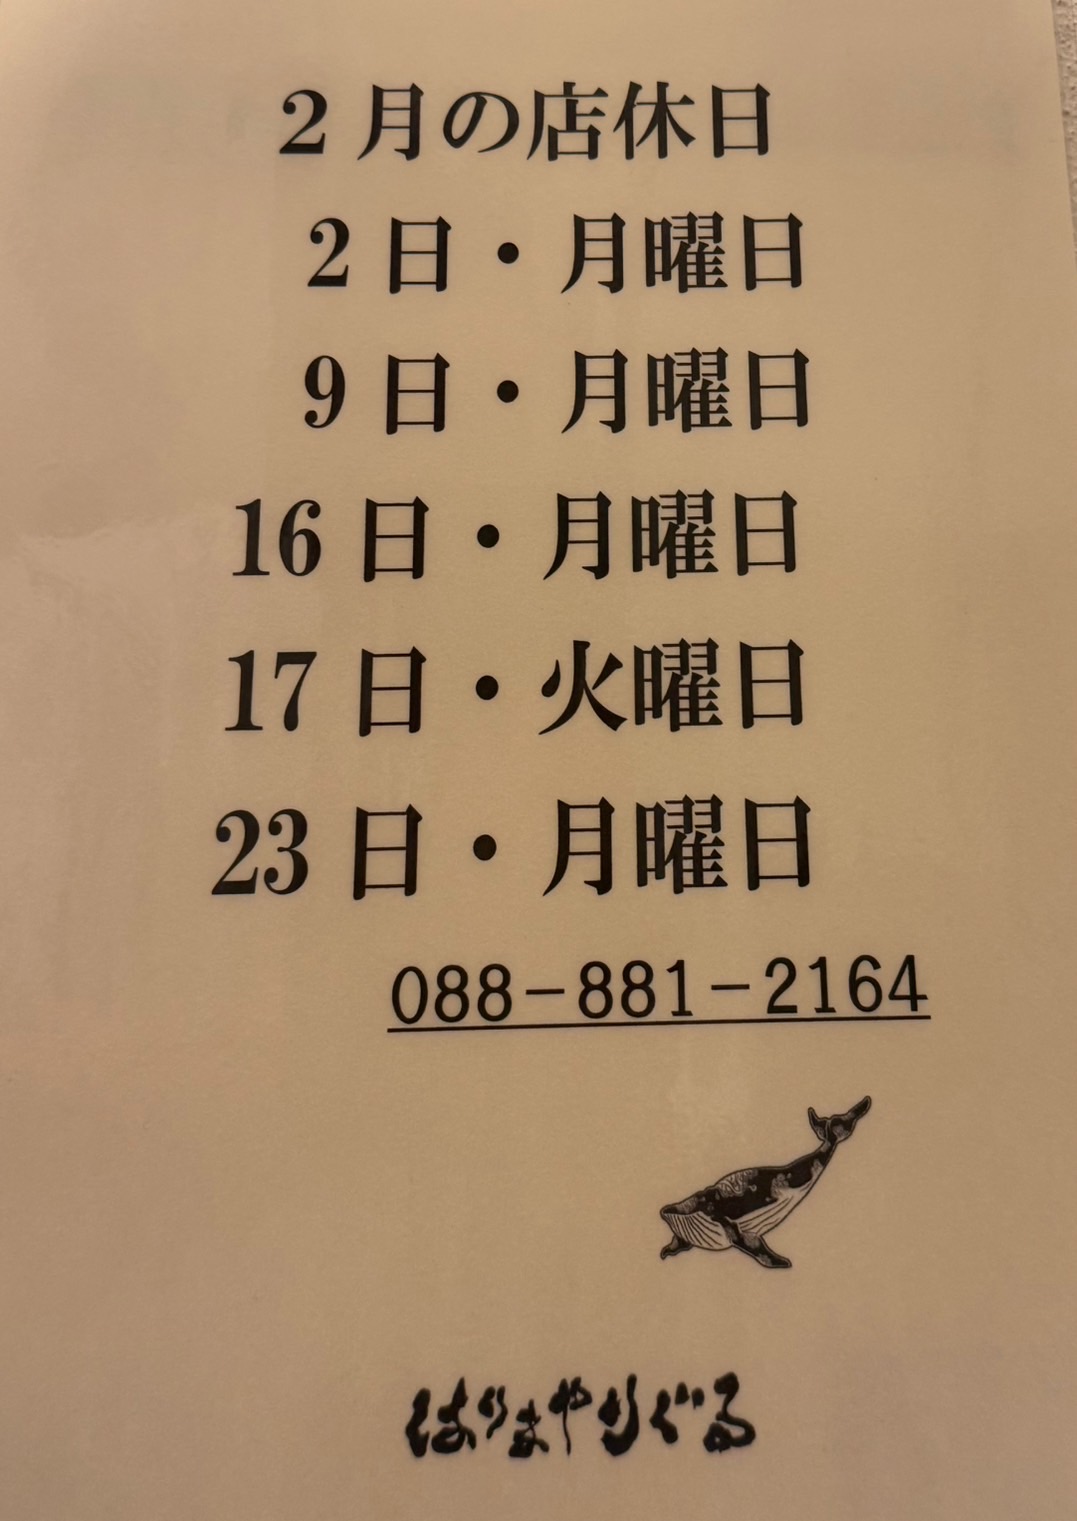 2月の店休日
2日・月曜日
9日・月曜日
16日・月曜日
17日・火曜日
23日・月曜日
088-881-2164
はりまやりぐる